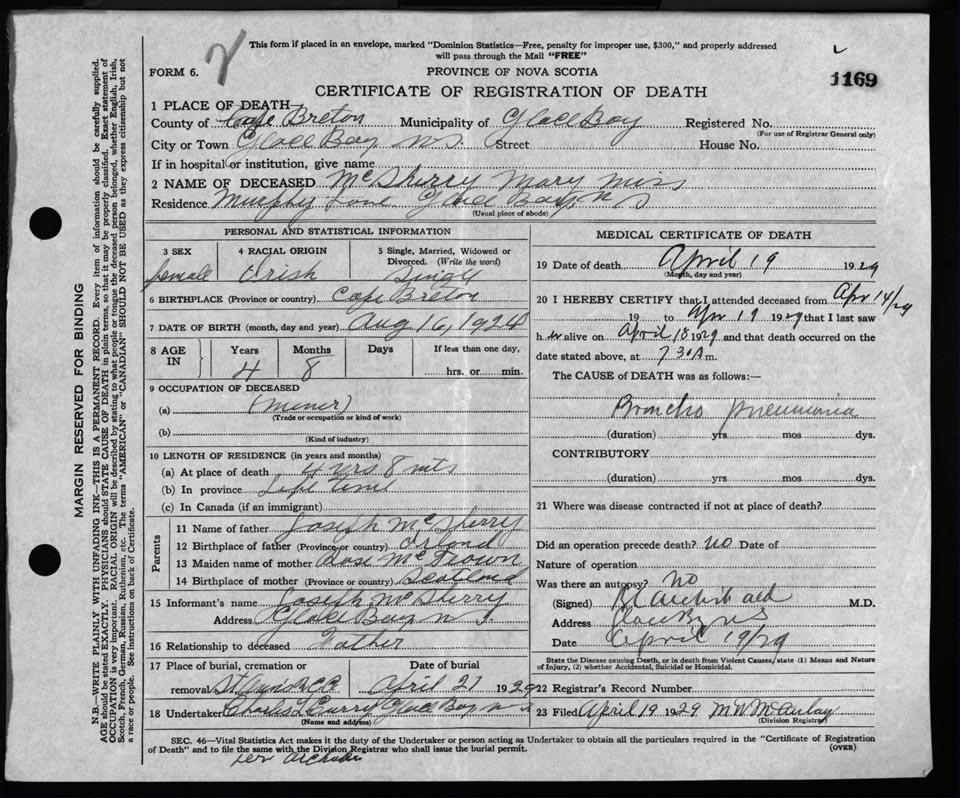 This form if placed in an envelope, marked "Dominion Statistics—Free, penalty for improper use, $300," and properly addressed
will pass through the Mail "FREE"
FORM 6.
PROVINCE OF NOVA SCOTIA
1169
CERTIFICATE OF REGISTRATION OF DEATH
1 PLACE OF DEATH
County of Cape Breton Municipality of Glace Bay Registered No.
(For use of Registrar General only)
City or Town Glace Bay N S Street House No.
If in hospital or institution, give name
2 NAME OF DECEASED McSherry Mary Miss
Residence Murphy Lane Glace Bay N S
(Usual place of abode)
PERSONAL AND STATISTICAL INFORMATION
3 SEX female
4 RACIAL ORIGIN Irish
5 Single, Married, Widowed or Divorced. (Write the word) Single
6 BIRTHPLACE (Province or country) Cape Breton
7 DATE OF BIRTH (month, day and year) Aug 16, 1924
8 AGE IN Years 4 Months 8 Days If less than one day, hrs. or min.
9 OCCUPATION OF DECEASED
(a) (Miner)
(Trade or occupation or kind of work)
(b)
(Kind of industry)
10 LENGTH OF RESIDENCE (in years and months)
(a) At place of death 4 yrs 8 mts
(b) In province Life time
(c) In Canada (if an immigrant)
Parents
11 Name of father Joseph McSherry
12 Birthplace of father (Province or country) Irland
13 Maiden name of mother Rose
14 Birthplace of mother (Province or country) Scotland
15 Informant's name Joseph McSherry
Address Glace Bay N S.
16 Relationship to deceased Father
17 Place of burial, cremation or removal Date of burial
St C C April 21 1929
18 Undertaker Charles L Curry Glace Bay N S
(Name and address)
MEDICAL CERTIFICATE OF DEATH
19 Date of death April 19 1929
(Month, day and year)
20 I HEREBY CERTIFY that I attended deceased from Apr 14/29
19 to Apr 19 1929 that I last saw
h er alive on April 18 1929 and that death occurred on the
date stated above, at 7 30 A m.
The CAUSE of DEATH was as follows:—
Broncho pneumonia
(duration) yrs mos dys.
CONTRIBUTORY
(duration) yrs mos dys.
21 Where was disease contracted if not at place of death?
Did an operation precede death? no Date of
Nature of operation
Was there an autopsy? No
(Signed) Archibald M.D.
Address Glace Bay NS
Date April 19/29
State the Disease causing Death, or in death from Violent Causes, state (1) Means and Nature
of Injury, (2) whether Accidental, Suicidal or Homicidal.
22 Registrar's Record Number
23 Filed April 19 1929 M W McAulay
(Division Registrar)
SEC. 46—Vital Statistics Act makes it the duty of the Undertaker or person acting as Undertaker to obtain all the particulars required in the "Certificate of Registration
of Death" and to file the same with the Division Registrar who shall issue the burial permit.
(OVER)
MARGIN RESERVED FOR BINDING
N.B.—WRITE PLAINLY WITH UNFADING INK—THIS IS A PERMANENT RECORD. Every item of information should be carefully supplied.
AGE should be stated EXACTLY. PHYSICIANS should STATE CAUSE OF DEATH in plain terms, so that it may be properly classified. Exact statement of
OCCUPATION is very important. RACIAL ORIGIN will be described by stating to what people or tongue the deceased person belonged, whether English, Irish,
Scotch, French, German, Russian, Ruthenian, etc. The terms "AMERICAN" or "CANADIAN" SHOULD NOT BE USED as they express citizenship but not
a race or people. See instructions on back of Certificate.